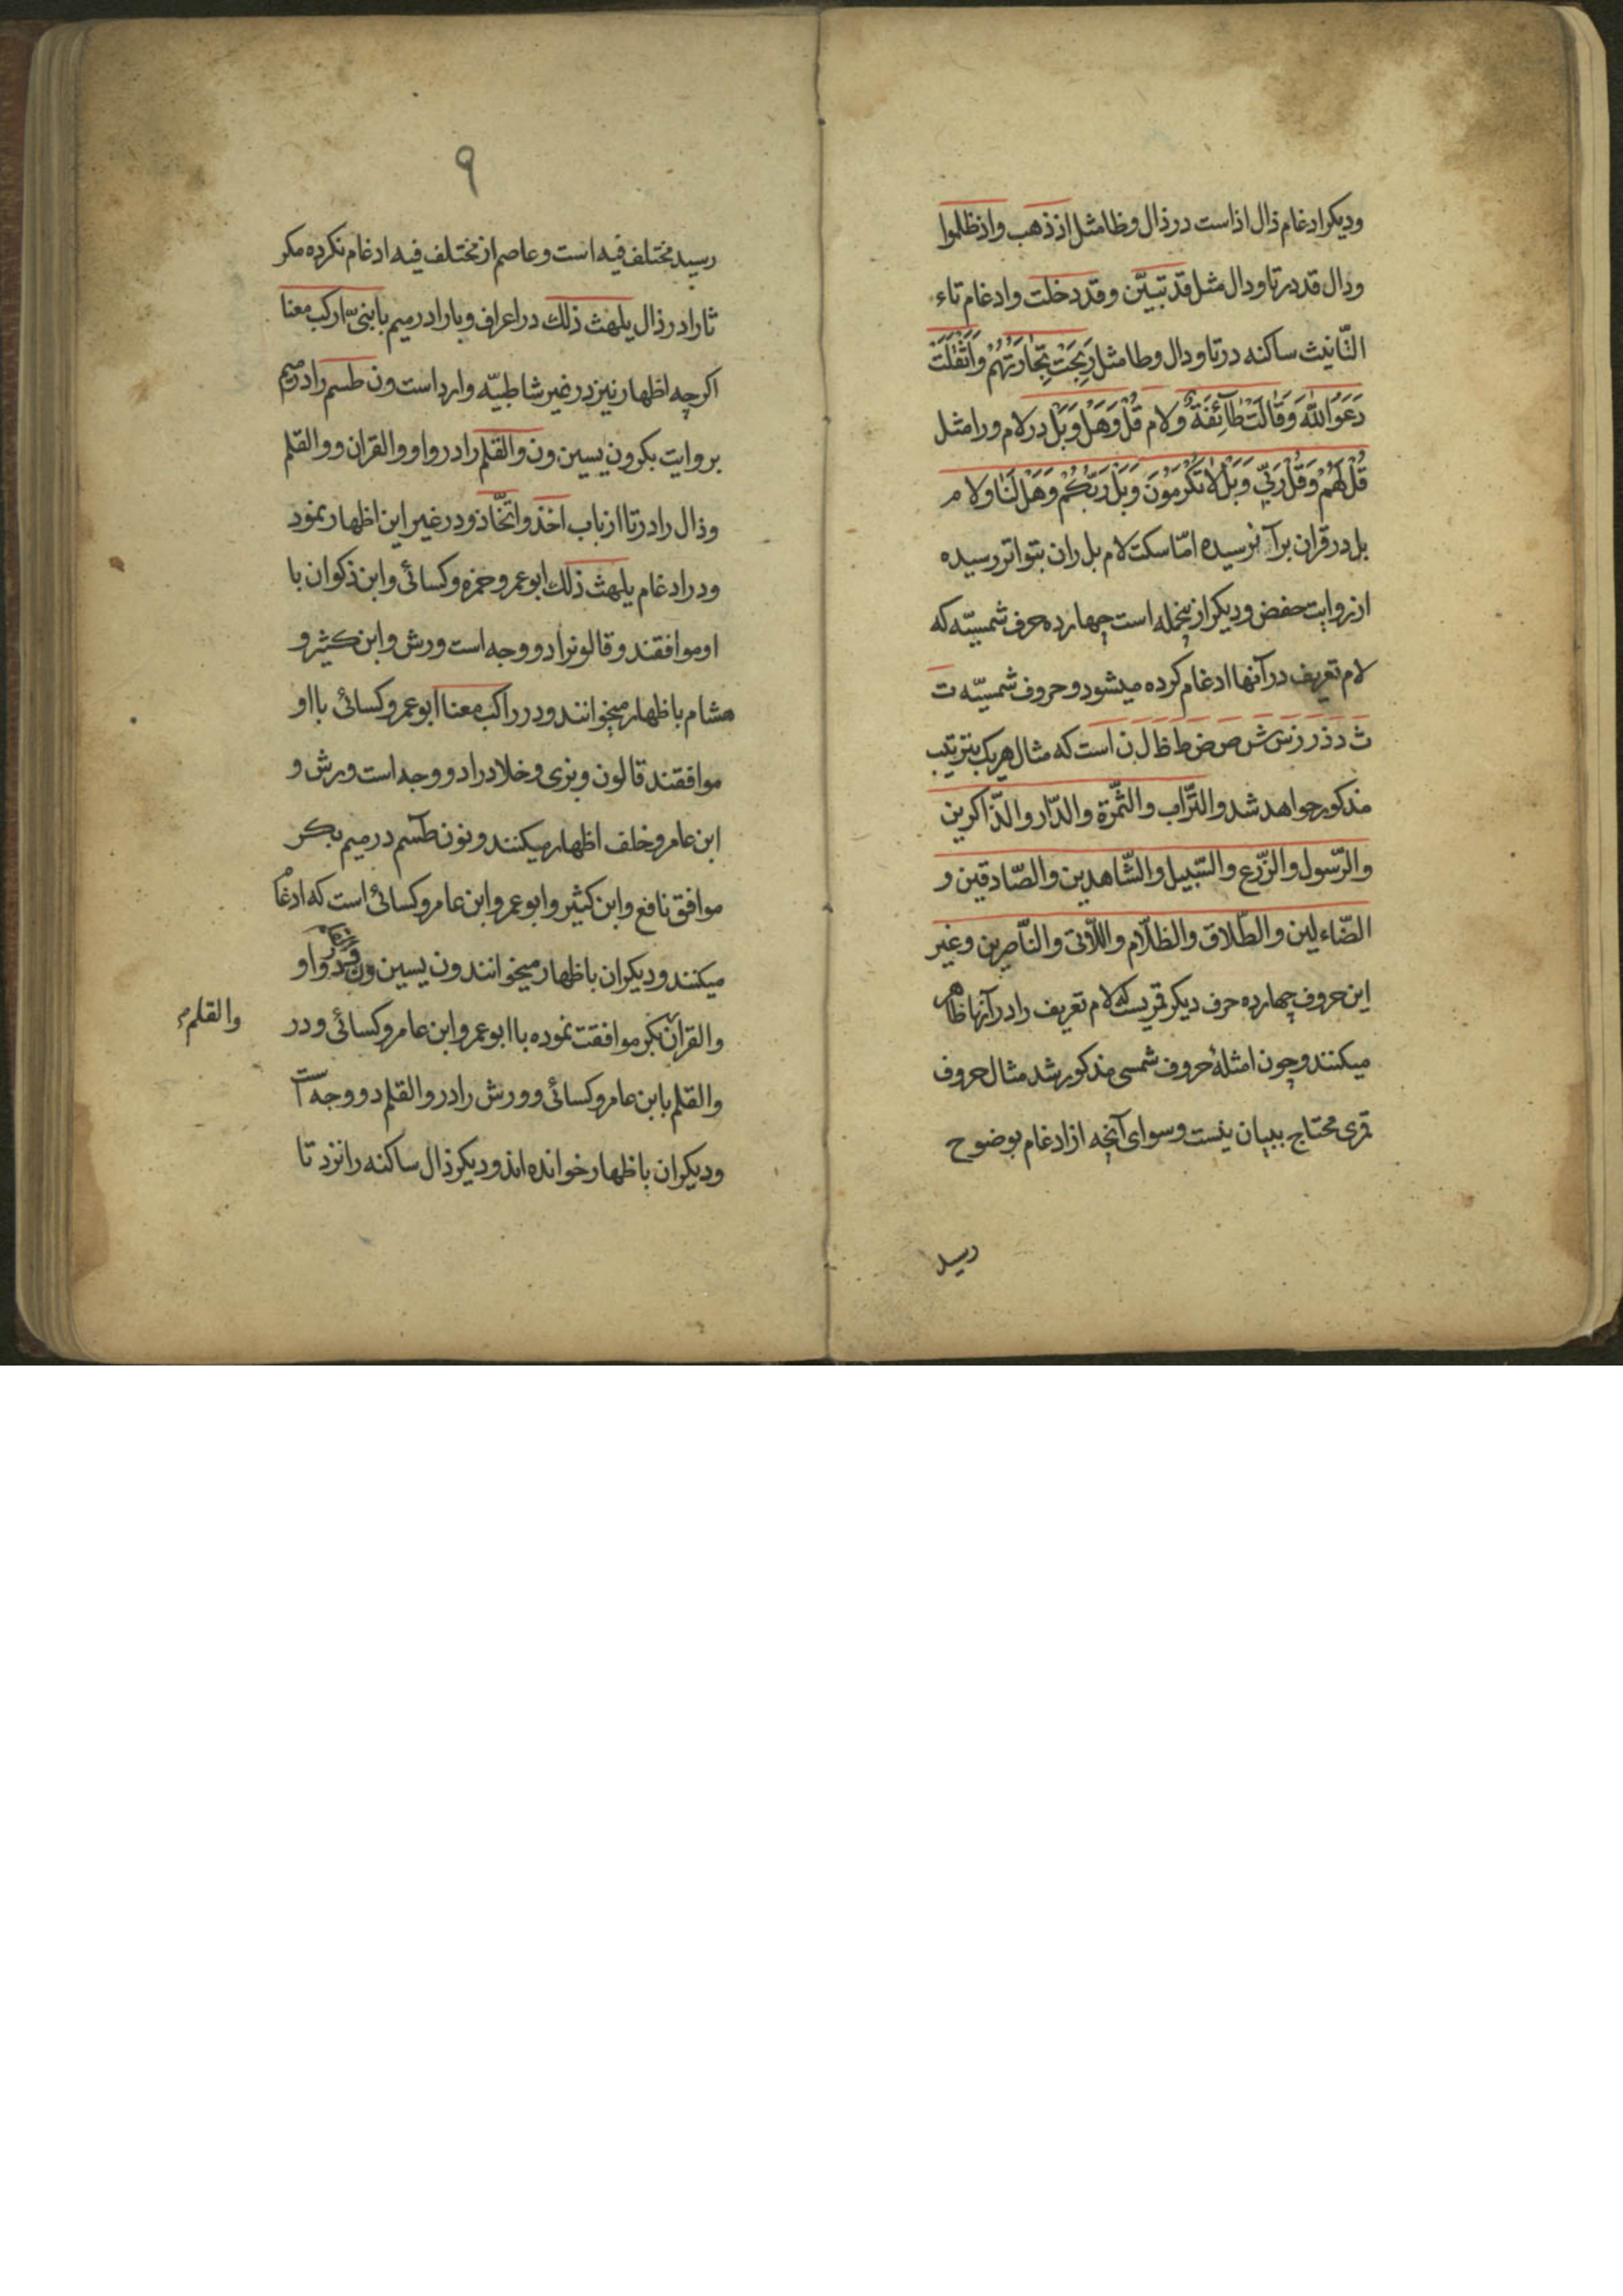 ودیکر ادغام ذال اذ است در ذال وظا مثل اذ ذهب واذ ظلموا
ودال قد در تا ودال مثل قد تبیّن وقد دخلت وادغام تاء
التّانیث ساکنه در تا ودال وطا مثل رَبِحَتْ تِجَارَتُهُمْ وَأَثْقَلَتْ
دَعَوَا اللهَ وَقَالَتْ طَائِفَةٌ ولام قُلْ وَهَلْ وَبَلْ در لام ورا مثل
قُلْ لَهُمْ وَقُلْ رَبِّ وَبَلْ لَا تُكْرِمُونَ وَبَلْ رَبُّكُمْ وَهَلْ لَنَا ولام
بل در قران برآ نرسیده امّا سکت لام بل ران بتواتر رسیده
از روایت حفض ودیکر ازینجمله است چهارده حرف شمسیّه که
لام تعریف در آنها ادغام کرده میشود وحروف شمسیّه ت
ث د ذ ر ز س ش ص ض ط ظ ل ن است که مثال هریک بترتیب
مذکور خواهد شد والتّراب والثّمرة والدّار والذّاکرین
والرّسول والزّرع والسّبیل والشّاهدین والصّادقین و
الضّاءلین والطّلاق والظلّام واللّاتی والنّاصرین وغیر
این حروف چهارده حرف دیکر قمریست که لام تعریف را در آنها ظاهر
میکنند وچون امثلهٔ حروف شمسی مذکور شد مثال حروف
قمری محتاج ببیان نیست وسوای آنچه از ادغام بوضوح
رسید
۹
رسید مختلف فیه است وعاصم از مختلف فیه ادغام نکرده مکر
ثا را در ذال یلهث ذلك در اعراف وبا را در میم یا بنیّ ارکب معنا
اکرچه اظهار نیز در غیر شاطبیّه وارد است ون طسم را در میم
بروایت بکر ون یسین ون والقلم را در واو والقران ووالقلم
وذال را در تا از باب اخذ واتّخاذ ودر غیر این اظهار نمود
ودر ادغام یلهث ذلك ابو عمرو حمزه وکسائی وابن ذکوان با
او موافقند وقالونرا دو وجه است ورش وابن کثیر و
هشام باظهار میخوانند ودر ارکب معنا ابو عمرو کسائی با او
موافقند قالون وبزی وخلاد را دو وجه است ورش و
ابن عامر وخلف اظهار میکنند ونون طآسم در میم بکر
موافق نافع وابن کثیر وابو عمرو ابن عامر وکسائی است که ادغام
میکنند ودیکران باظهار میخوانند ون یسین ون در واو
والقرآن بکر موافقت نموده با ابو عمرو ابن عامر وکسائی ودر
والقلم
والقلم با ابن عامر وکسائی وورش را در والقلم دو وجه است
ودیکران باظهار خوانده اند ودیکر ذال ساکنه را نزد تا